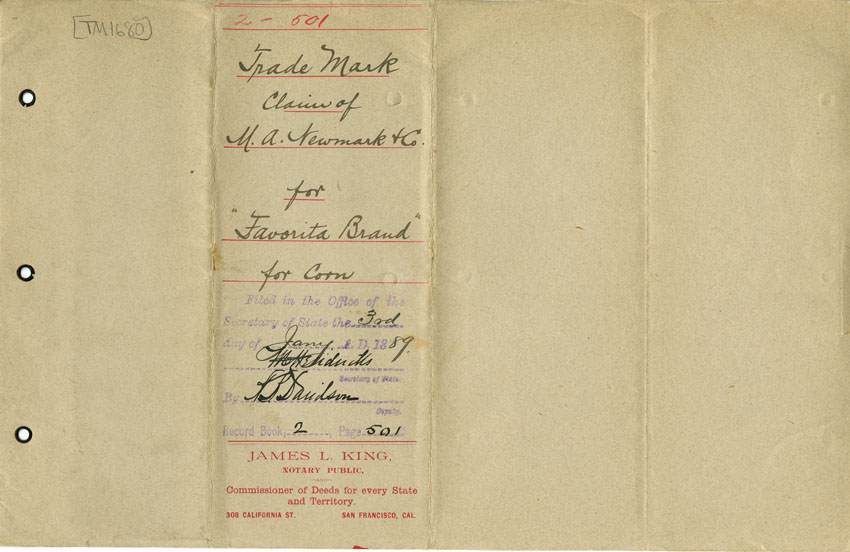 [TM1680]
2 - 501
Trade Mark
Claim of
M. A. Newmark & Co.
for
"Favorita Brand"
for Corn
Filed in the Office of the
Secretary of State the 3rd
day of Jany A. D. 1889.
Secretary of State.
By Davidson
Deputy.
Record Book, 2, Page 501
JAMES L. KING,
NOTARY PUBLIC,
AND
Commissioner of Deeds for every State
and Territory.
308 CALIFORNIA ST. SAN FRANCISCO, CAL.